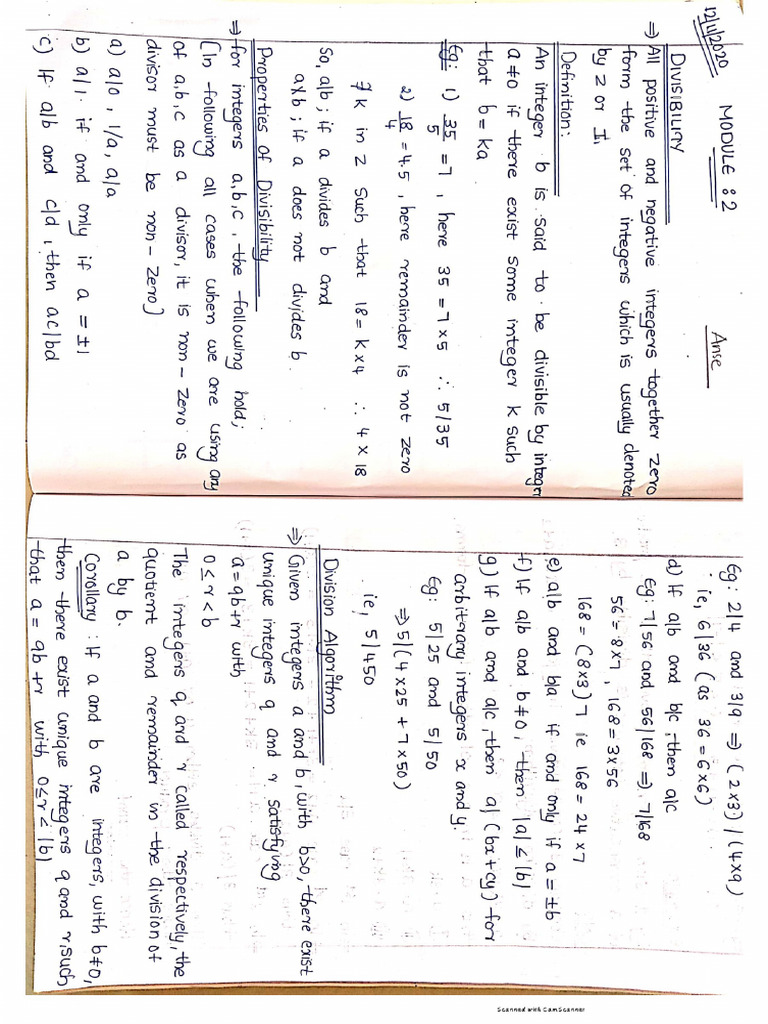 12/11/2020
MODULE : 2
Anse
DIVISIBILITY
⇒ All positive and negative integers together zero
form the set of integers which is usually denoted
by Z or I.
Definition:
An integer b is said to be divisible by integer
a ≠ 0 if there exist some integer k such
that b = ka
Eg: 1) 35/5 = 7 , here 35 = 7 × 5 ∴ 5/35
2) 18/4 = 4.5 , here remainder is not zero
∄ k in Z such that 18 = k × 4 ∴ 4 ∤ 18
So, a|b ; if a divides b and
a∤b ; if a does not divides b.
Properties of Divisibility
⇒ for integers a, b, c , the following hold;
(In following all cases when we are using any
of a, b, c as a divisor, it is non-zero as
divisor must be non-zero)
a) a|0 , 1/a , a/a
b) a/1. if and only if a = ±1
c) If a/b and c/d , then ac/bd
Eg: 2/4 and 3/9 ⇒ (2×3) / (4×9)
ie, 6/36 (as 36 = 6×6)
d) If a/b and b/c , then a/c
Eg: 7/56 and 56/168 ⇒ 7/168
56 = 8×7 , 168 = 3×56
168 = (8×3) 7 ie 168 = 24 × 7
e) a/b and b/a if and only if a = ±b
f) If a/b and b≠0 , then |a| ≤ |b|
g) If a/b and a/c , then a| (bx + cy) for
arbitrary integers x and y.
Eg: 5/25 and 5/50
⇒ 5/(4×25 + 7×50)
ie, 5/450
Division Algorithm
⇒ Given integers a and b, with b>0, there exist
unique integers q and r satisfying
a = qb+r with
0 ≤ r < b
The integers q and r called respectively, the
quotient and remainder in the division of
a by b.
Corollary : If a and b are integers, with b≠0,
then there exist unique integers q and r, such
that a = qb + r with 0≤r< |b|
Scanned with CamScanner